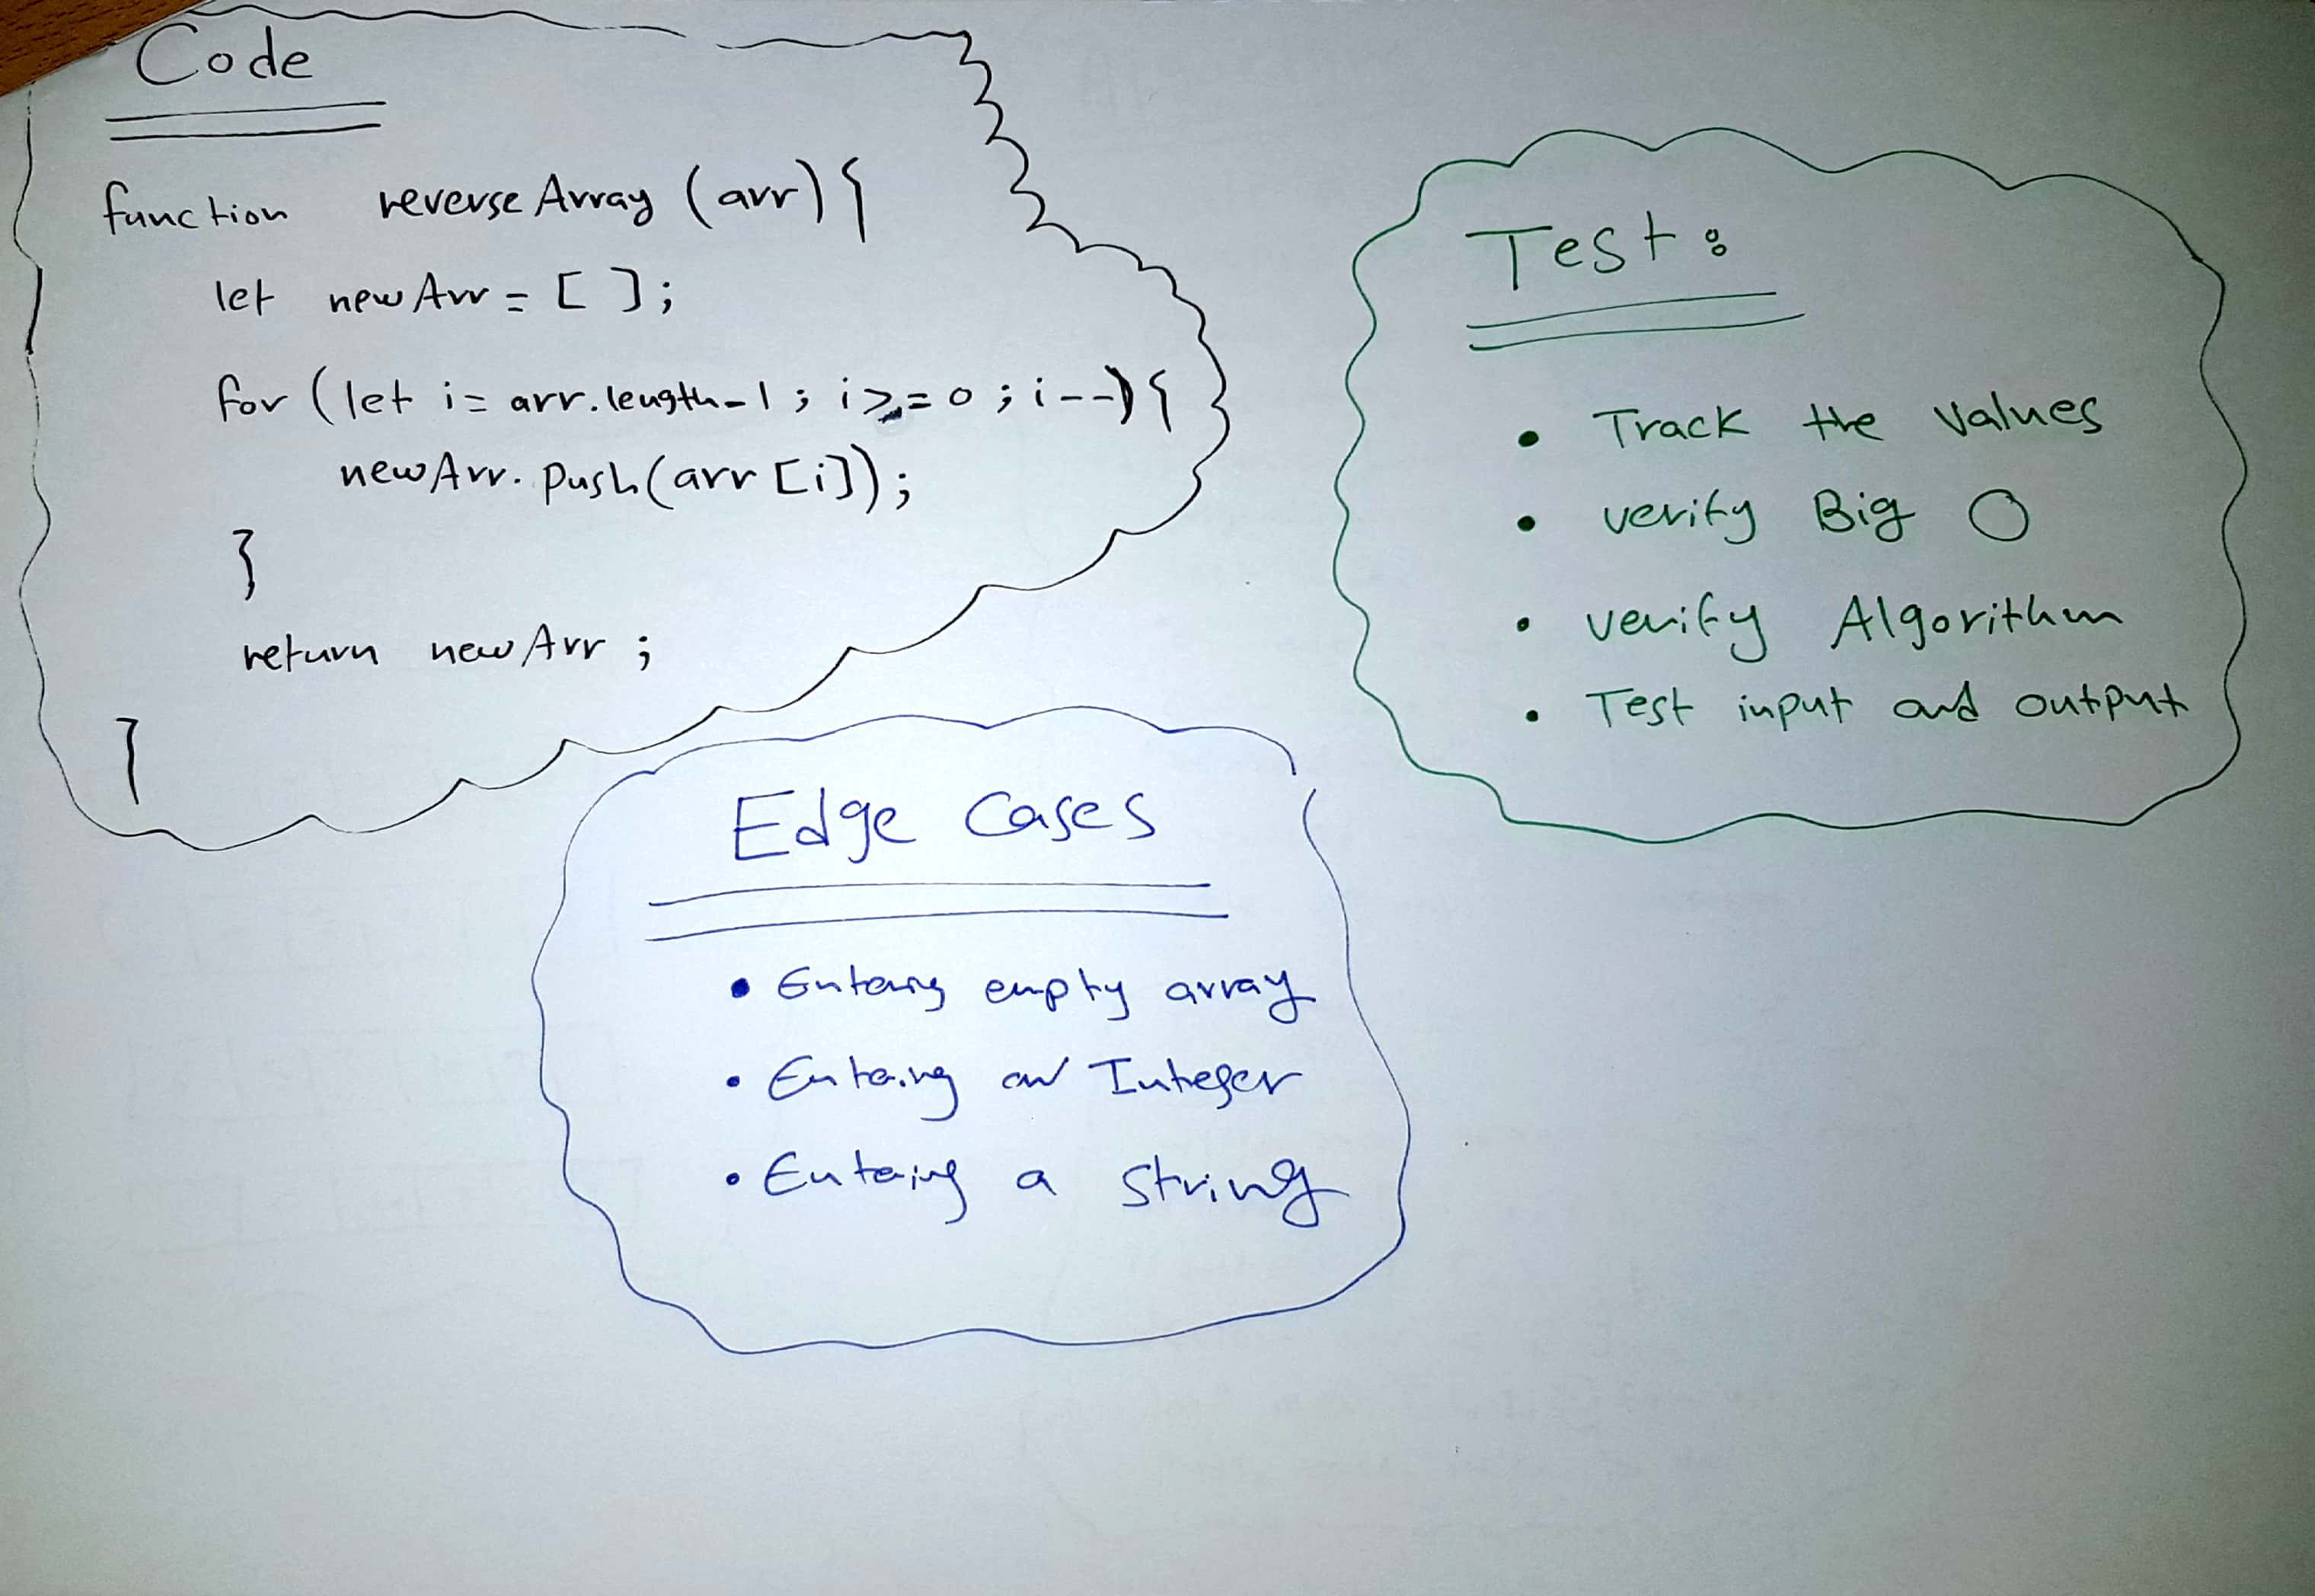 Code
function reverseArray (arr) {
let newArr = [ ];
for (let i = arr.length-1 ; i >= 0 ; i--) {
newArr.push(arr[i]);
}
return newArr ;
}
Test:
• Track the values
• verify Big O
• verify Algorithm
• Test input and output
Edge Cases
• Entering empty array
• Entering an Integer
• Entering a string